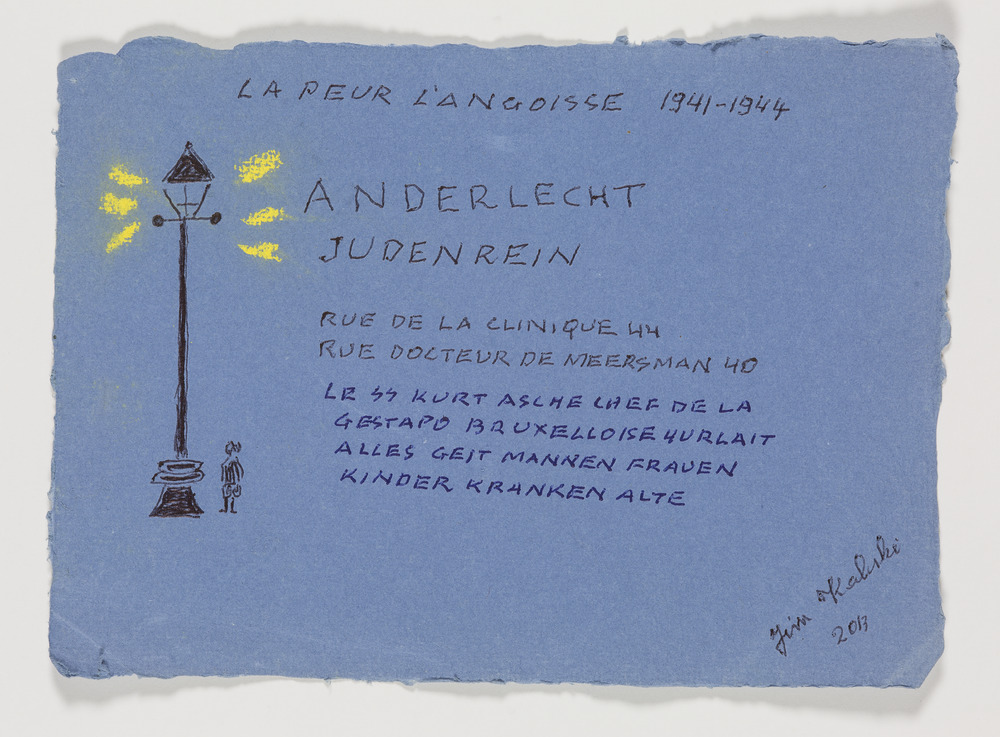 LA PEUR L'ANGOISSE 1941-1944
ANDERLECHT
JUDENREIN
RUE DE LA CLINIQUE 44
RUE DOCTEUR DE MEERSMAN 40
LE SS KURT ASCHE CHEF DE LA
GESTAPO BRUXELLOISE HURLAIT
ALLES GEIT MANNEN FRAUEN
KINDER KRANKEN ALTE
Jim Kaliski
2013